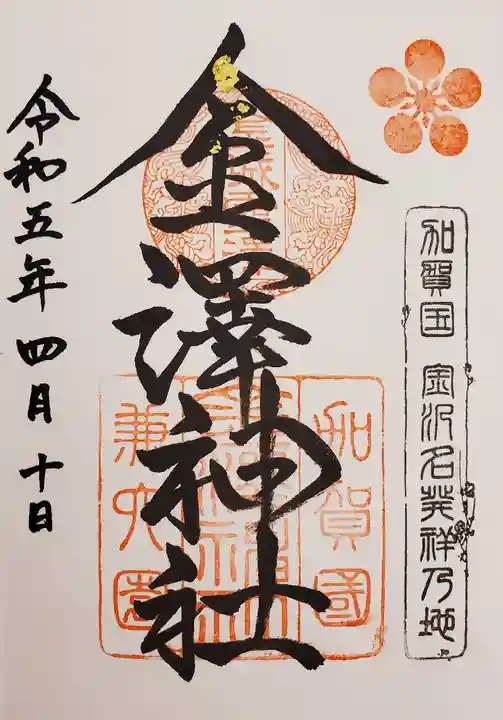 加賀国 金沢名発祥乃地
金澤神社
加賀國
兼六園
令和五年四月十日